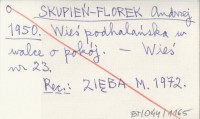 SKUPIEŃ-FLOREK Andrzej
1950. Wieś podhalańska w
walce o pokój. – Wieś
nr 23.
Rec.: ZIĘBA M. 1972.